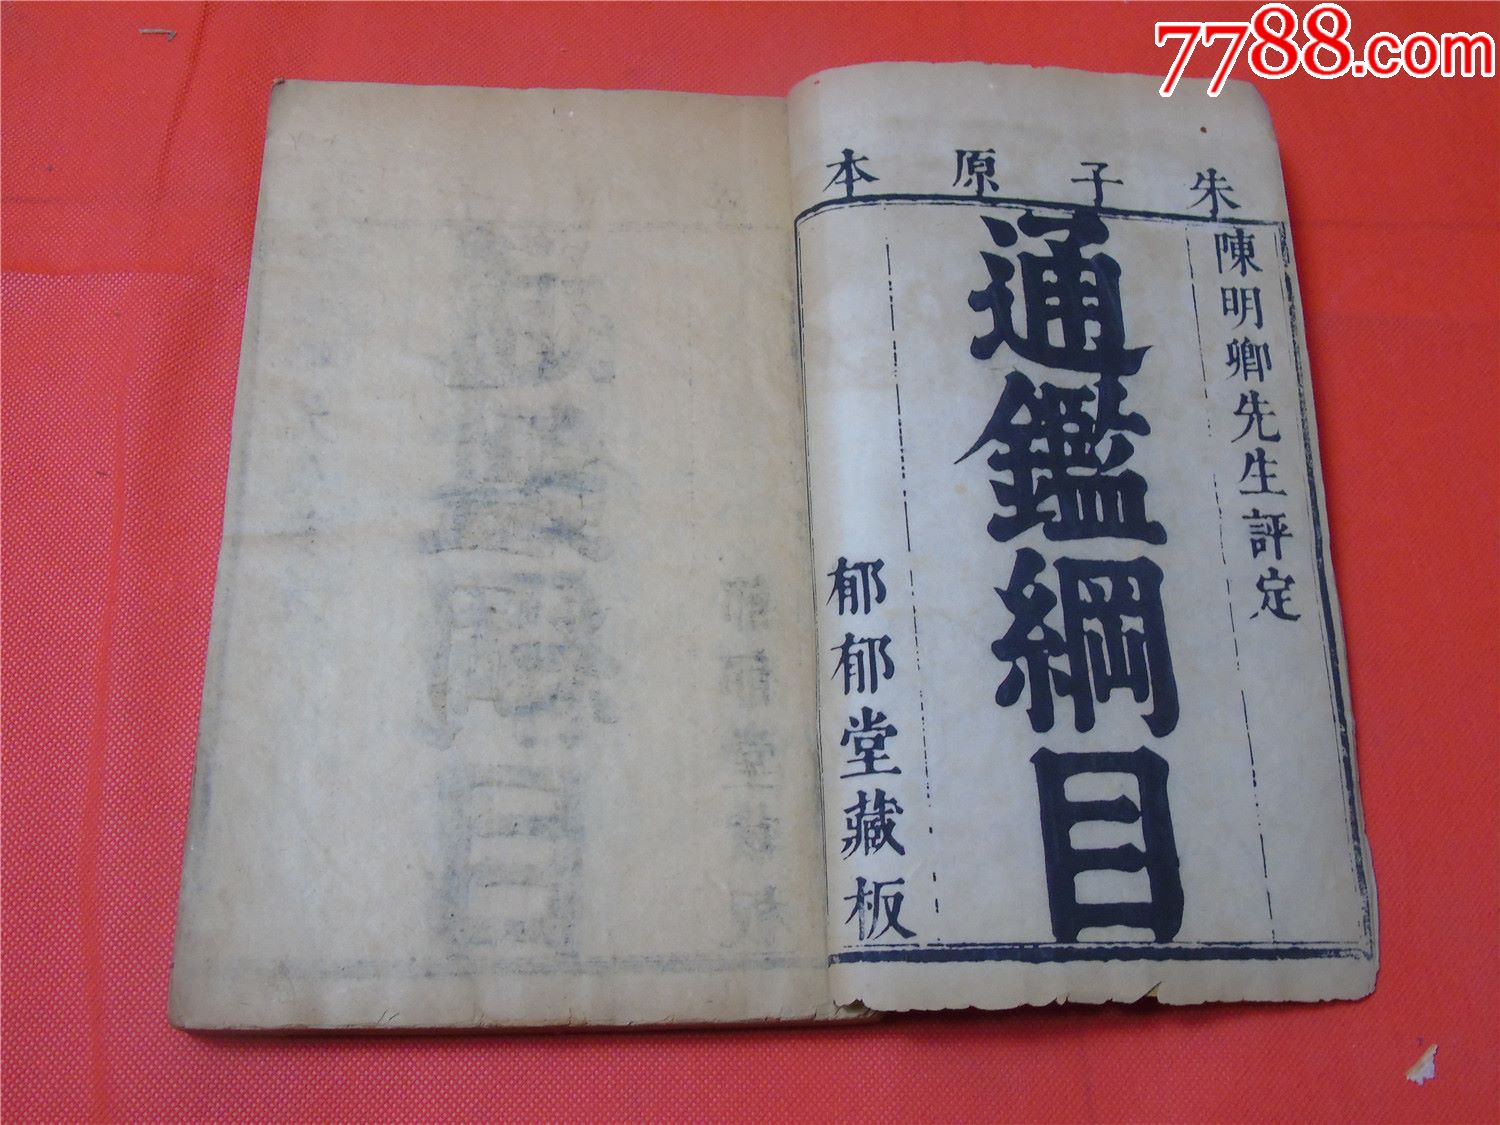 7788.com
朱子原本
陳明卿先生評定
通鑑綱目
郁郁堂藏板